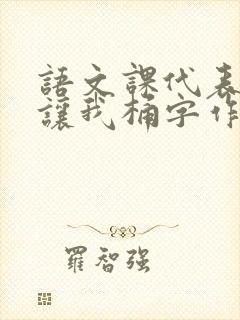 語文課代表
讓我桶字作
羅智强